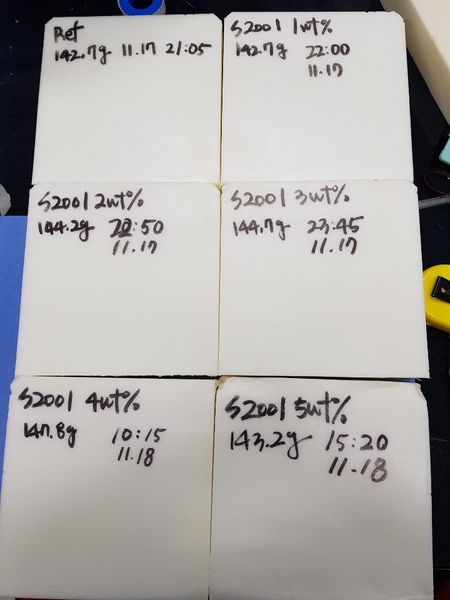 Ref
142.7g 11.17 21:05
S2001 1wt%
142.7g 22:00
11.17
S2001 2wt%
144.2g 22:50
11.17
S2001 3wt%
144.7g 23:45
11.17
S2001 4wt%
147.8g 10:15
11.18
S2001 5wt%
143.2g 15:20
11.18